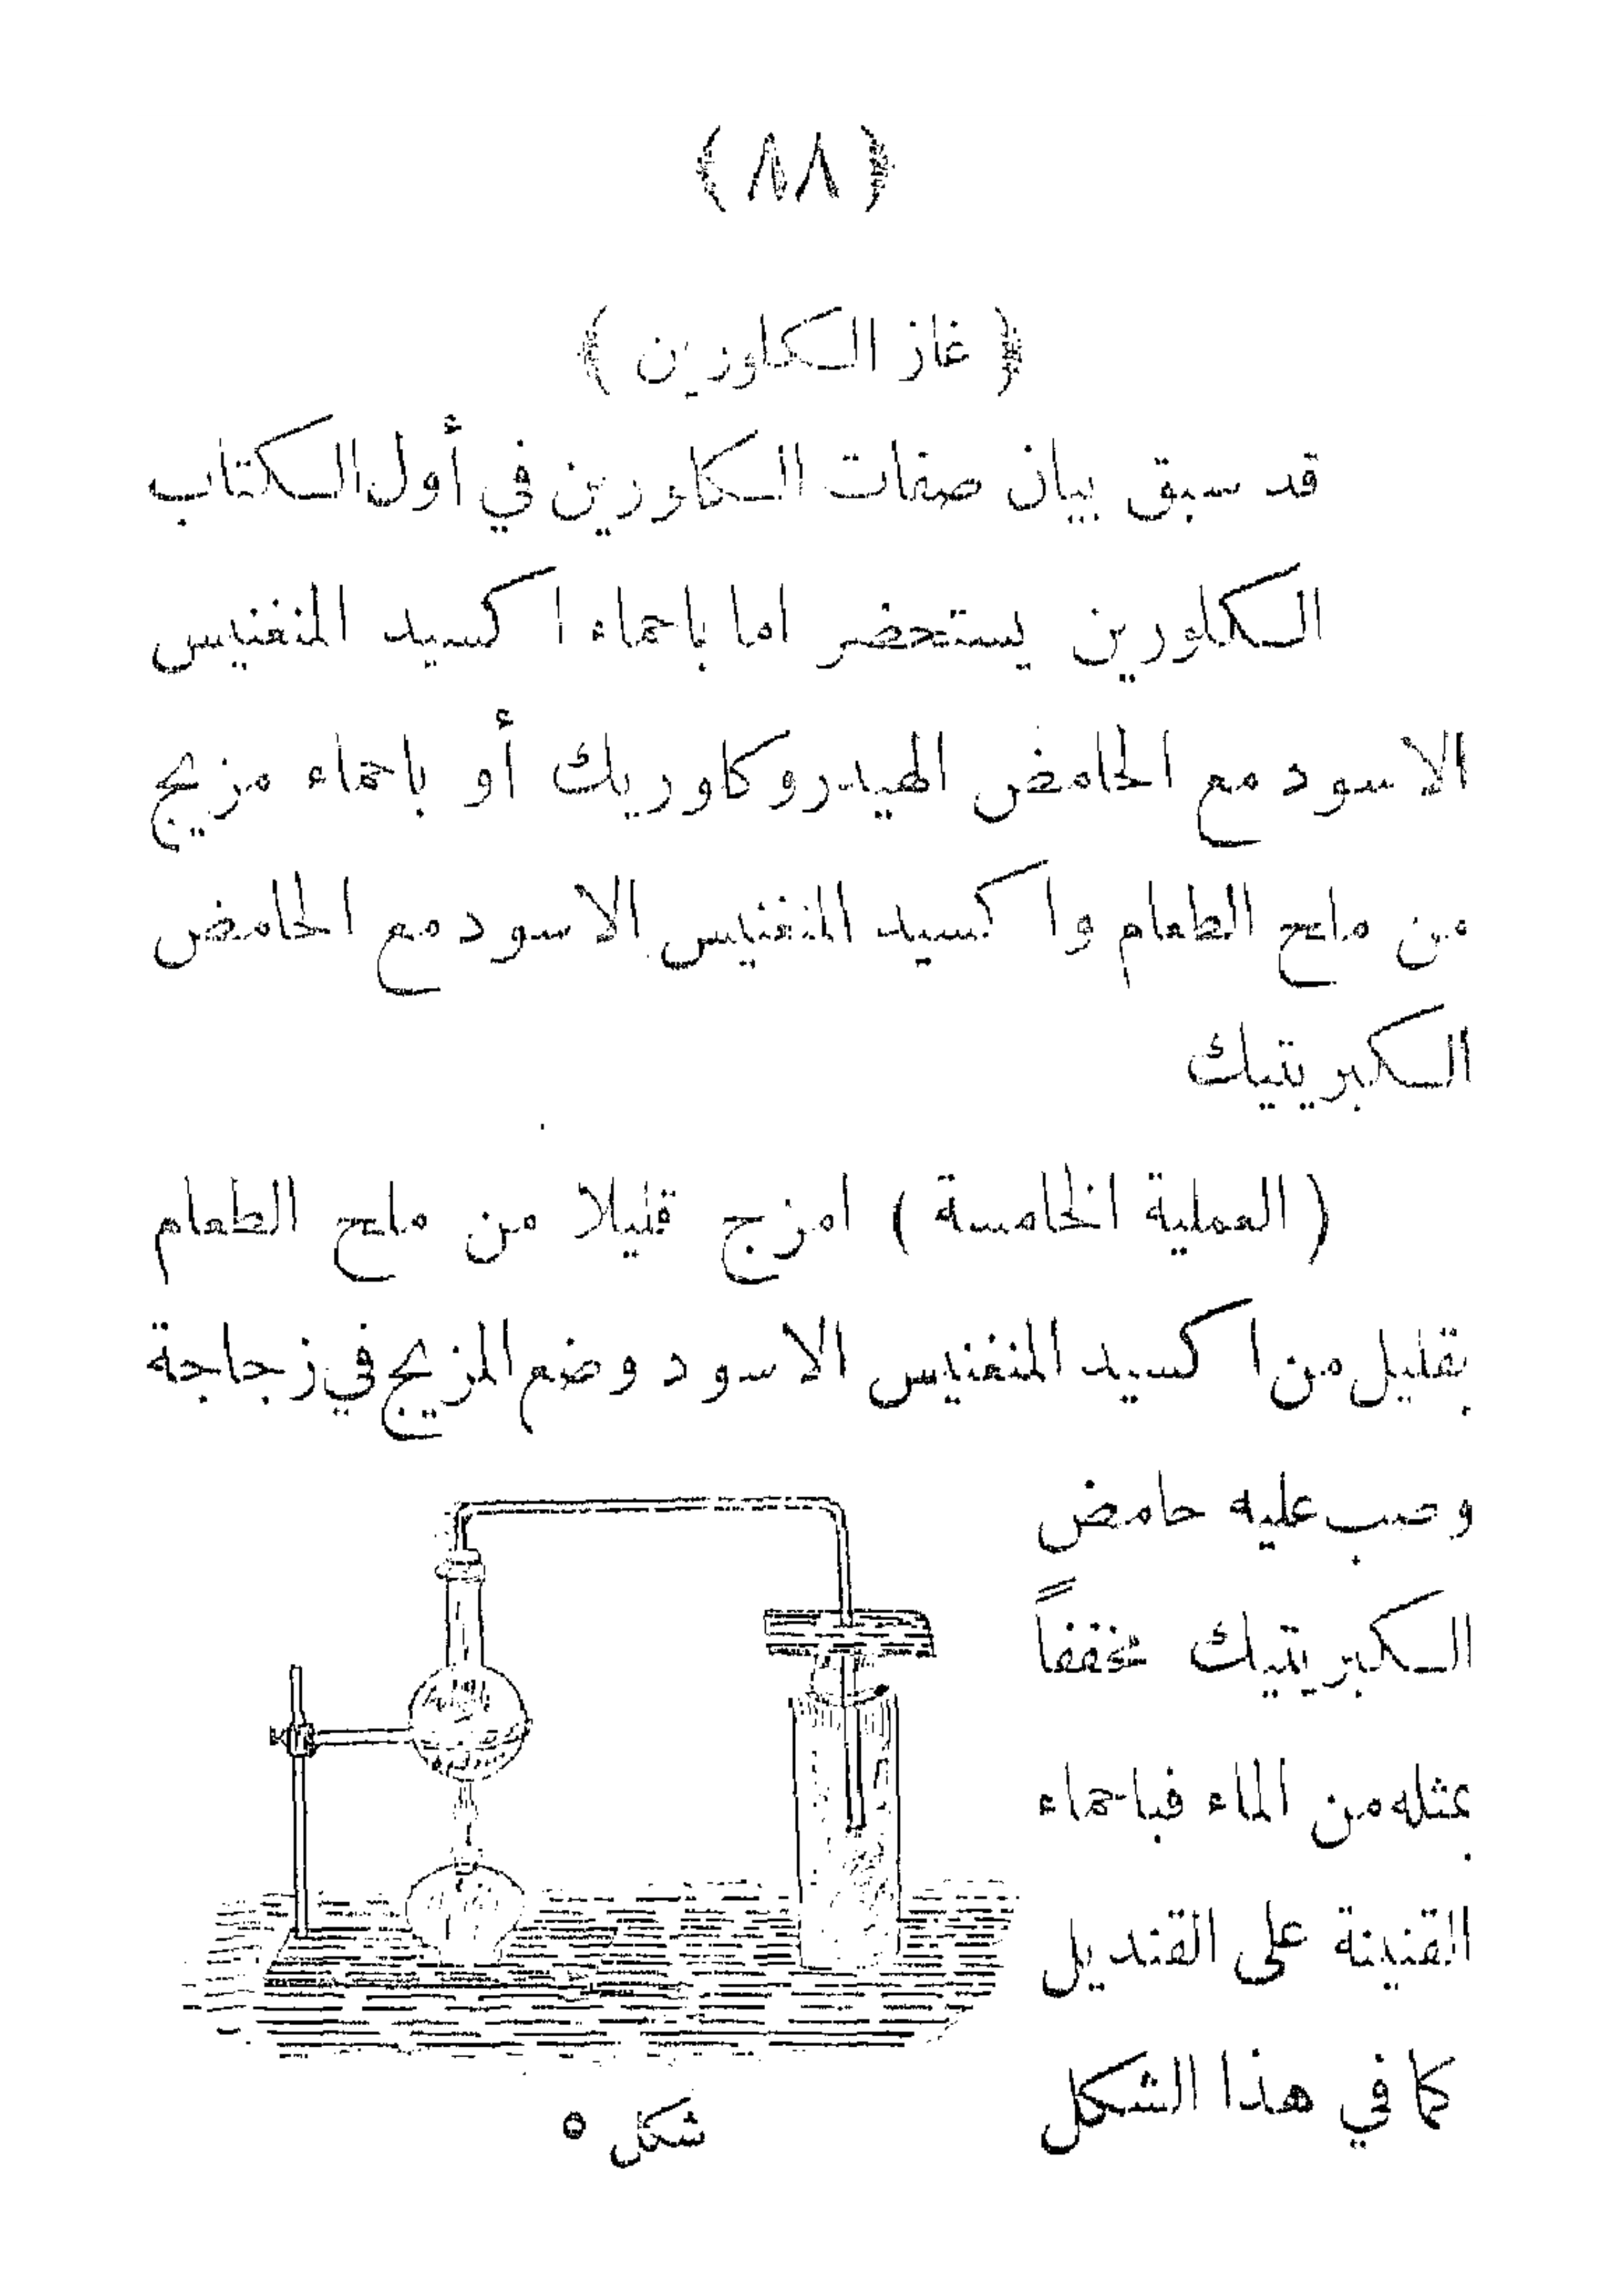 (٨٨)
(غاز الكلورين)
قد سبق بيان صفات الكلورين في أول الكتاب
الكلورين يستحضر اما باحماء اكسيد المنغنيس
الاسود مع الحامض الهيدروكلوريك أو باحماء مزيج
من ملح الطعام واكسيد المنغنيس الاسود مع الحامض
الكبريتيك
(العملية الخامسة) امزج قليلا من ملح الطعام
بقليل من اكسيد المنغنيس الاسود وضع المزيج في زجاجة
وصب عليه حامض
الكبريتيك مخففاً
بمثله من الماء فباحماء
القنينة على القنديل
كما في هذا الشكل
شكل ٥